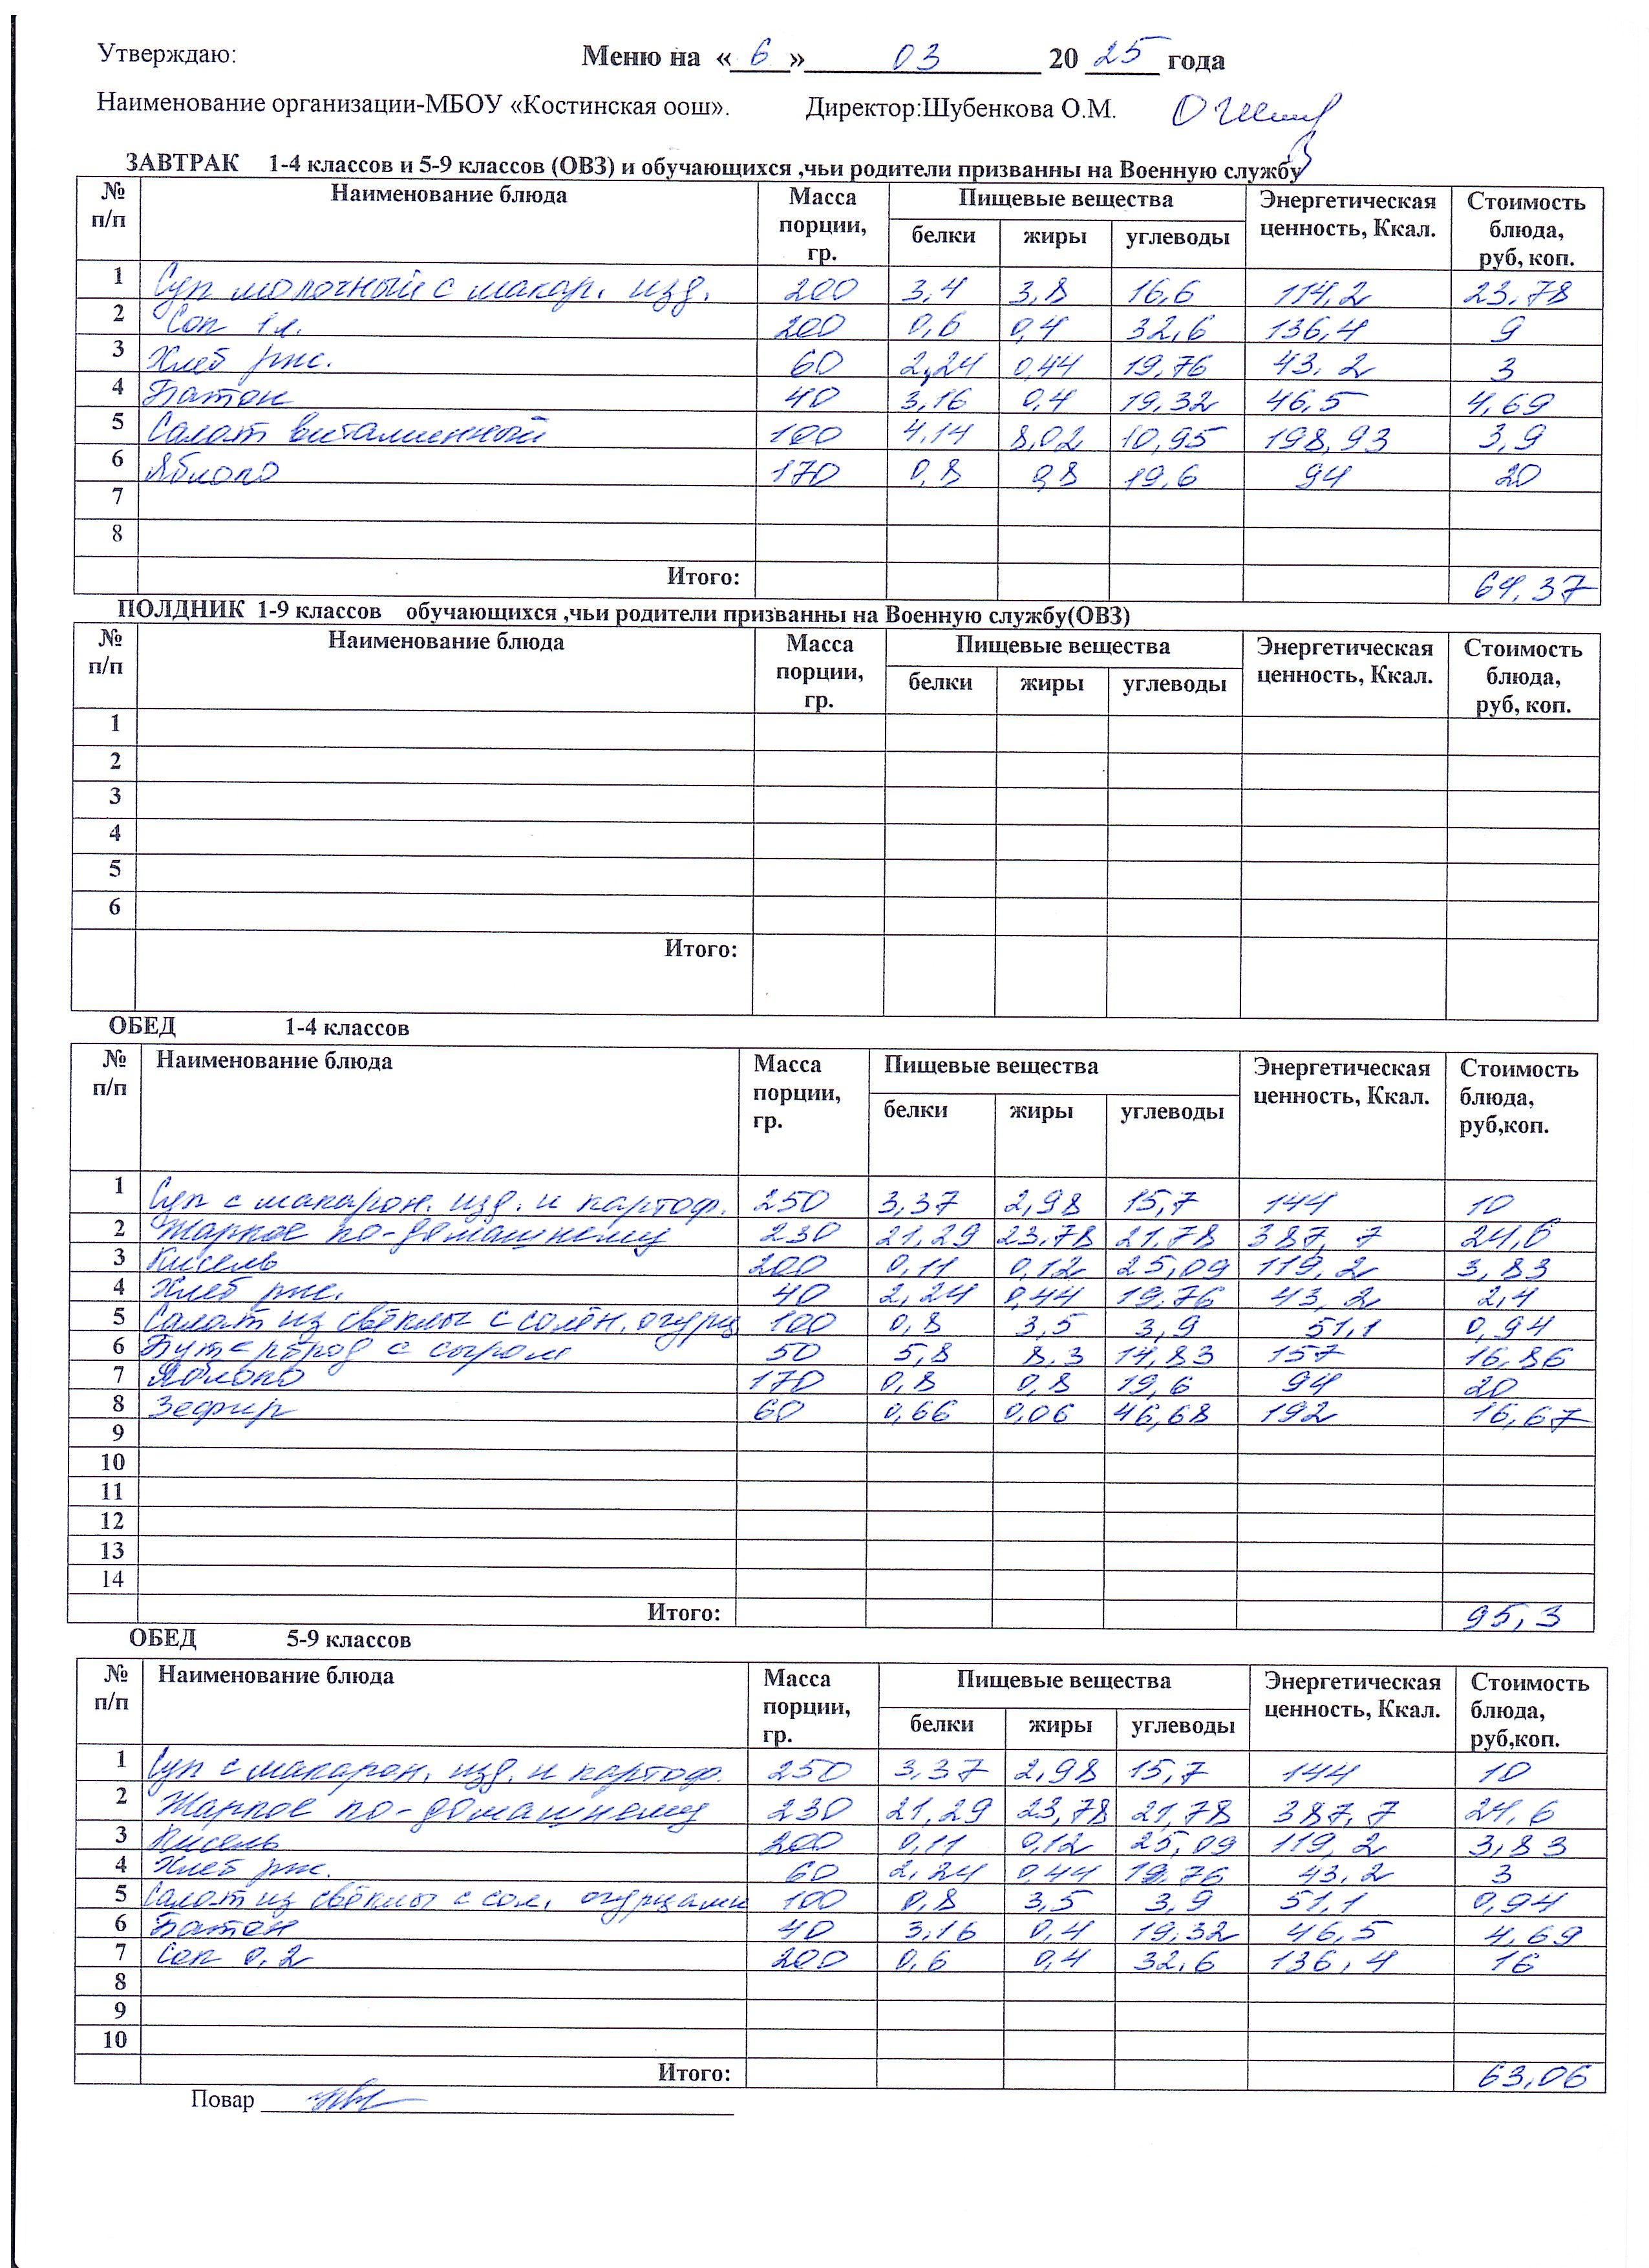 Утверждаю: Меню на «6» 03 20 25 года
Наименование организации-МБОУ «Костинская оош». Директор:Шубенкова О.М.
ЗАВТРАК 1-4 классов и 5-9 классов (ОВЗ) и обучающихся ,чьи родители призванны на Военную службу
№ п/п Наименование блюда Масса порции, гр. Пищевые вещества белки жиры углеводы Энергетическая ценность, Ккал. Стоимость блюда, руб, коп.
1 Суп молочный с макар. изд. 200 3,4 3,8 16,6 114,2 23,78
2 Сок 1л. 200 0,6 0,4 32,6 136,4 9
3 Хлеб рж. 60 2,24 0,44 19,76 43,2 3
4 Батон 40 3,16 0,4 19,32 46,5 4,69
5 Салат витаминный 100 4,14 8,02 10,95 198,93 3,9
6 Яблоко 170 0,8 0,8 19,6 94 20
7
8
Итого: 64,37
ПОЛДНИК 1-9 классов обучающихся ,чьи родители призванны на Военную службу(ОВЗ)
№ п/п Наименование блюда Масса порции, гр. Пищевые вещества белки жиры углеводы Энергетическая ценность, Ккал. Стоимость блюда, руб, коп.
1
2
3
4
5
6
Итого:
ОБЕД 1-4 классов
№ п/п Наименование блюда Масса порции, гр. Пищевые вещества белки жиры углеводы Энергетическая ценность, Ккал. Стоимость блюда, руб,коп.
1 Суп с макарон. изд. и картоф. 250 3,37 2,98 15,7 144 10
2 Жаркое по-домашнему 230 21,29 23,78 21,78 387,7 24,6
3 Кисель 200 0,11 0,12 25,09 119,2 3,83
4 Хлеб рж. 40 2,24 0,44 19,76 43,2 2,4
5 Салат из свёклы с солён. огурц 100 0,8 3,5 3,9 51,1 0,94
6 Бутерброд с сыром 50 5,8 8,3 14,83 157 16,86
7 Яблоко 170 0,8 0,8 19,6 94 20
8 Зефир 60 0,66 0,06 46,68 192 16,67
9
10
11
12
13
14
Итого: 95,3
ОБЕД 5-9 классов
№ п/п Наименование блюда Масса порции, гр. Пищевые вещества белки жиры углеводы Энергетическая ценность, Ккал. Стоимость блюда, руб,коп.
1 Суп с макарон. изд. и картоф. 250 3,37 2,98 15,7 144 10
2 Жаркое по-домашнему 230 21,29 23,78 21,78 387,7 24,6
3 Кисель 200 0,11 0,12 25,09 119,2 3,83
4 Хлеб рж. 60 2,24 0,44 19,76 43,2 3
5 Салат из свёклы с сол. огурцами 100 0,8 3,5 3,9 51,1 0,94
6 Батон 40 3,16 0,4 19,32 46,5 4,69
7 Сок 0,2 200 0,6 0,4 32,6 136,4 16
8
9
10
Итого: 63,06
Повар